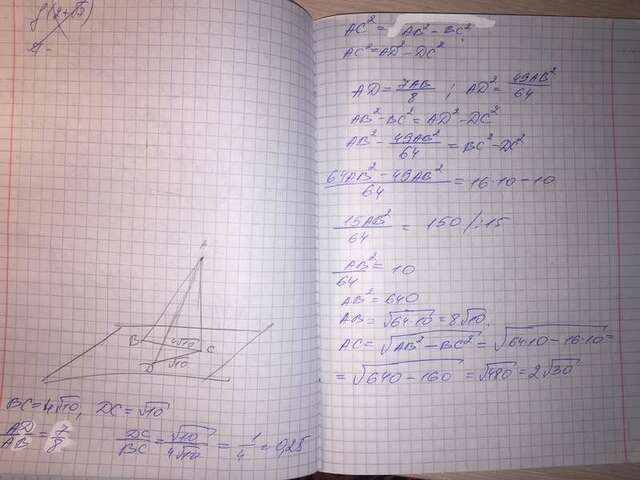 f(2+√3)
2-
A
B
4√10
C
D
√10
BC=4√10, DC=√10
AD/AB=7/8 DC/BC=√10/4√10=1/4=0,25
AC²=AB²-BC²;
AC²=AD²-DC²
AD=7AB/8; AD²=49AB²/64
AB²-BC²=AD²-DC²
AB²-49AB²/64=BC²-DC²
64AB²-49AB²/64=16·10-10
15AB²/64=150/:15
AB²/64=10
AB²=640
AB=√64·10=8√10.
AC=√AB²-BC²=√64·10-16·10=
=√640-160=√480=2√30